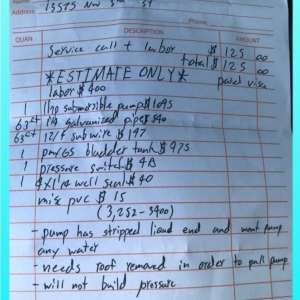 Address 13575 NW
Phone
QUAN. DESCRIPTION AMOUNT
Service call + labor $125 00
total $125 00
*ESTIMATE ONLY* paid visa
labor $400
1 1hp submersible pump $1095
63ft 1¼ galvanized pipe $540
63ft 12/4 sub wire $197
1 pmx65 bladder tank $975
1 pressure switch $48
1 4x1¼ well seal $40
misc pvc $15
(3,252-3400)
- pump has stripped liquid end and wont pump
any water
- needs roof removed in order to pull pump
- will not build pressure